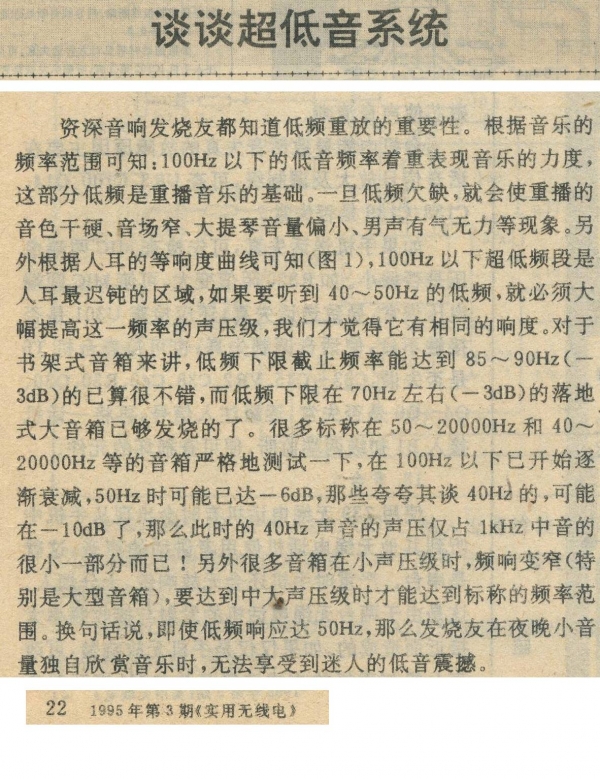 谈谈超低音系统
资深音响发烧友都知道低频重放的重要性。根据音乐的
频率范围可知:100Hz以下的低音频率着重表现音乐的力度,
这部分低频是重播音乐的基础。一旦低频欠缺,就会使重播的
音色干硬、音场窄、大提琴音量偏小、男声有气无力等现象。另
外根据人耳的等响度曲线可知(图1),100Hz以下超低频段是
人耳最迟钝的区域,如果要听到40～50Hz的低频,就必须大
幅提高这一频率的声压级,我们才觉得它有相同的响度。对于
书架式音箱来讲,低频下限截止频率能达到85～90Hz(－
3dB)的已算很不错,而低频下限在70Hz左右(－3dB)的落地
式大音箱已够发烧的了。很多标称在50～20000Hz和40～
20000Hz等的音箱严格地测试一下,在100Hz以下已开始逐
渐衰减,50Hz时可能已达－6dB,那些夸夸其谈40Hz的,可能
在－10dB了,那么此时的40Hz声音的声压仅占1kHz中音的
很小一部分而已！另外很多音箱在小声压级时,频响变窄(特
别是大型音箱),要达到中大声压级时才能达到标称的频率范
围。换句话说,即使低频响应达50Hz,那么发烧友在夜晚小音
量独自欣赏音乐时,无法享受到迷人的低音震撼。
22 1995年第3期《实用无线电》